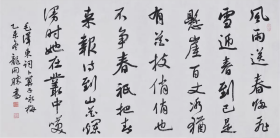 風雨送春歸飛
雪迎春到已是
懸崖百丈冰猶
有花枝俏俏也
不爭春祇把春
來報待到山花爛
漫時她在叢中笑
毛澤東詞卜算子詠梅
乙未年龍開勝書